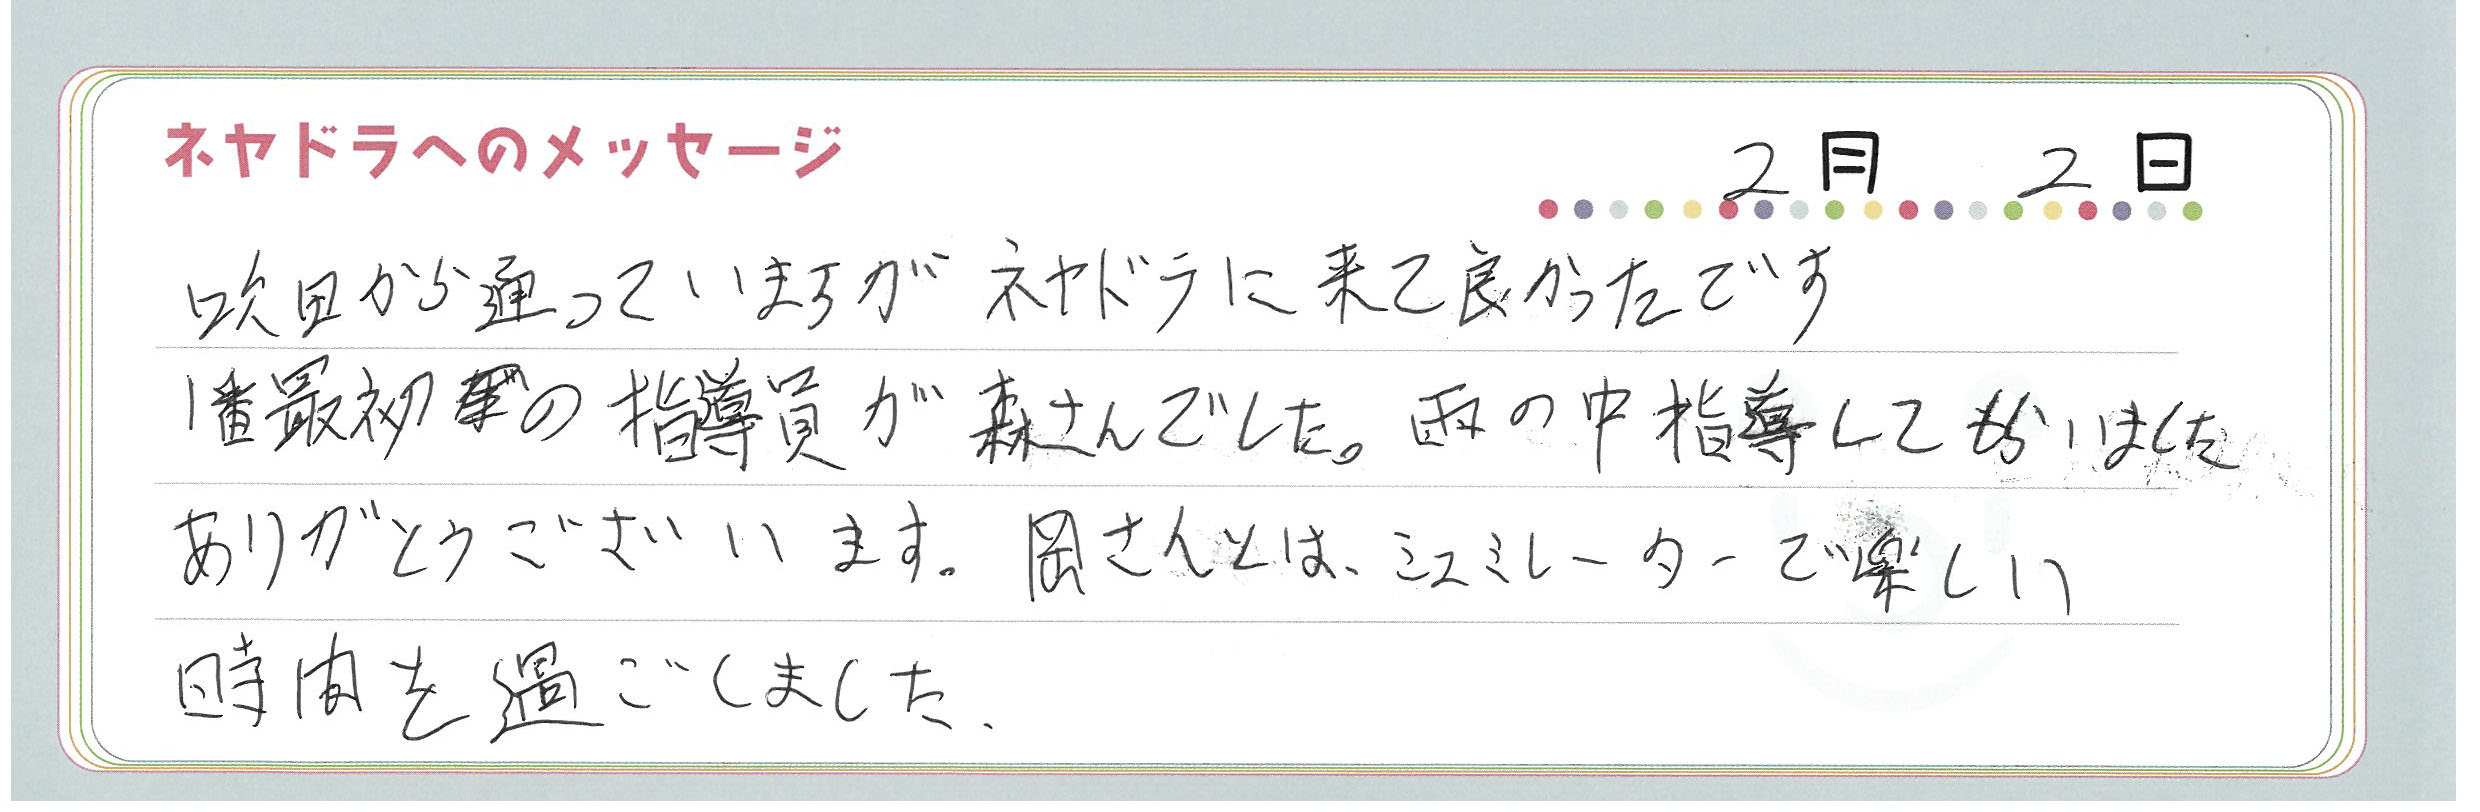 ネヤドラへのメッセージ
2月 2日
吹田から通っていますがネヤドラに来て良かったです
1番最初の指導員が森さんでした。雨の中指導してもらいました
ありがとうございます。岡さんとは、シュミレーターで楽しい
時間を過ごしました、